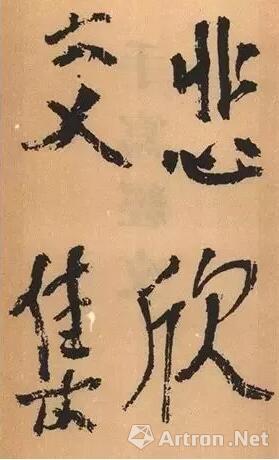 悲欣
交集
Artron.Net